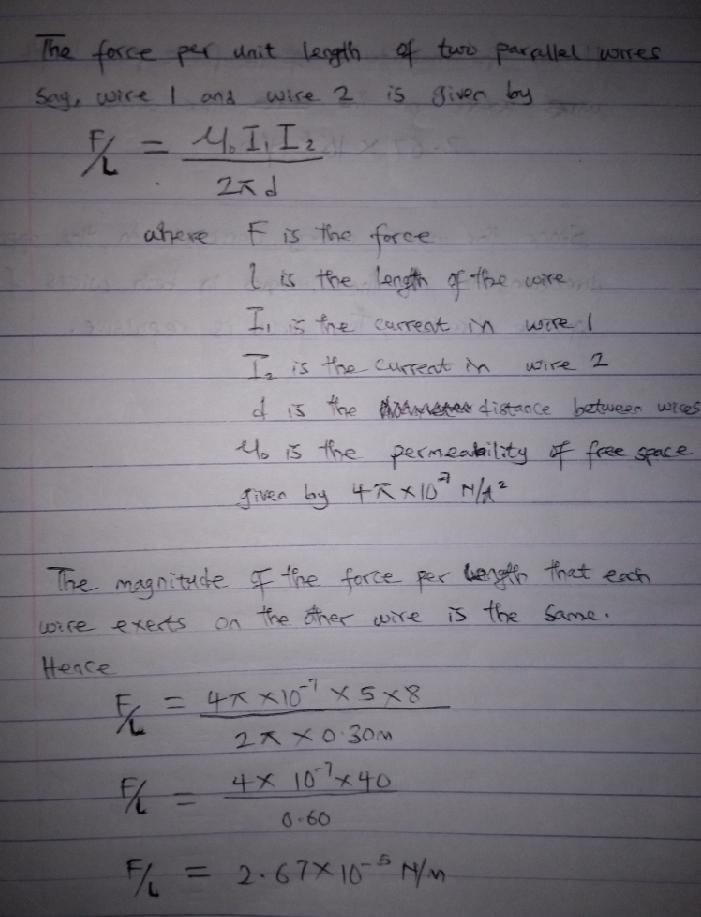 The force per unit length of two parallel wires
Say, wire 1 and wire 2 is given by
F/L = μ₀ I₁ I₂
2π d
where F is the force
l is the length of the wire
I₁ is the current in wire 1
I₂ is the current in wire 2
d is the distance between wires
μ₀ is the permeability of free space
given by 4π × 10⁻⁷ N/A²
The magnitude of the force per length that each
wire exerts on the other wire is the same.
Hence
F/L = 4π × 10⁻⁷ × 5 × 8
2π × 0.30m
F/L = 4 × 10⁻⁷ × 40
0.60
F/L = 2.67 × 10⁻⁵ N/m